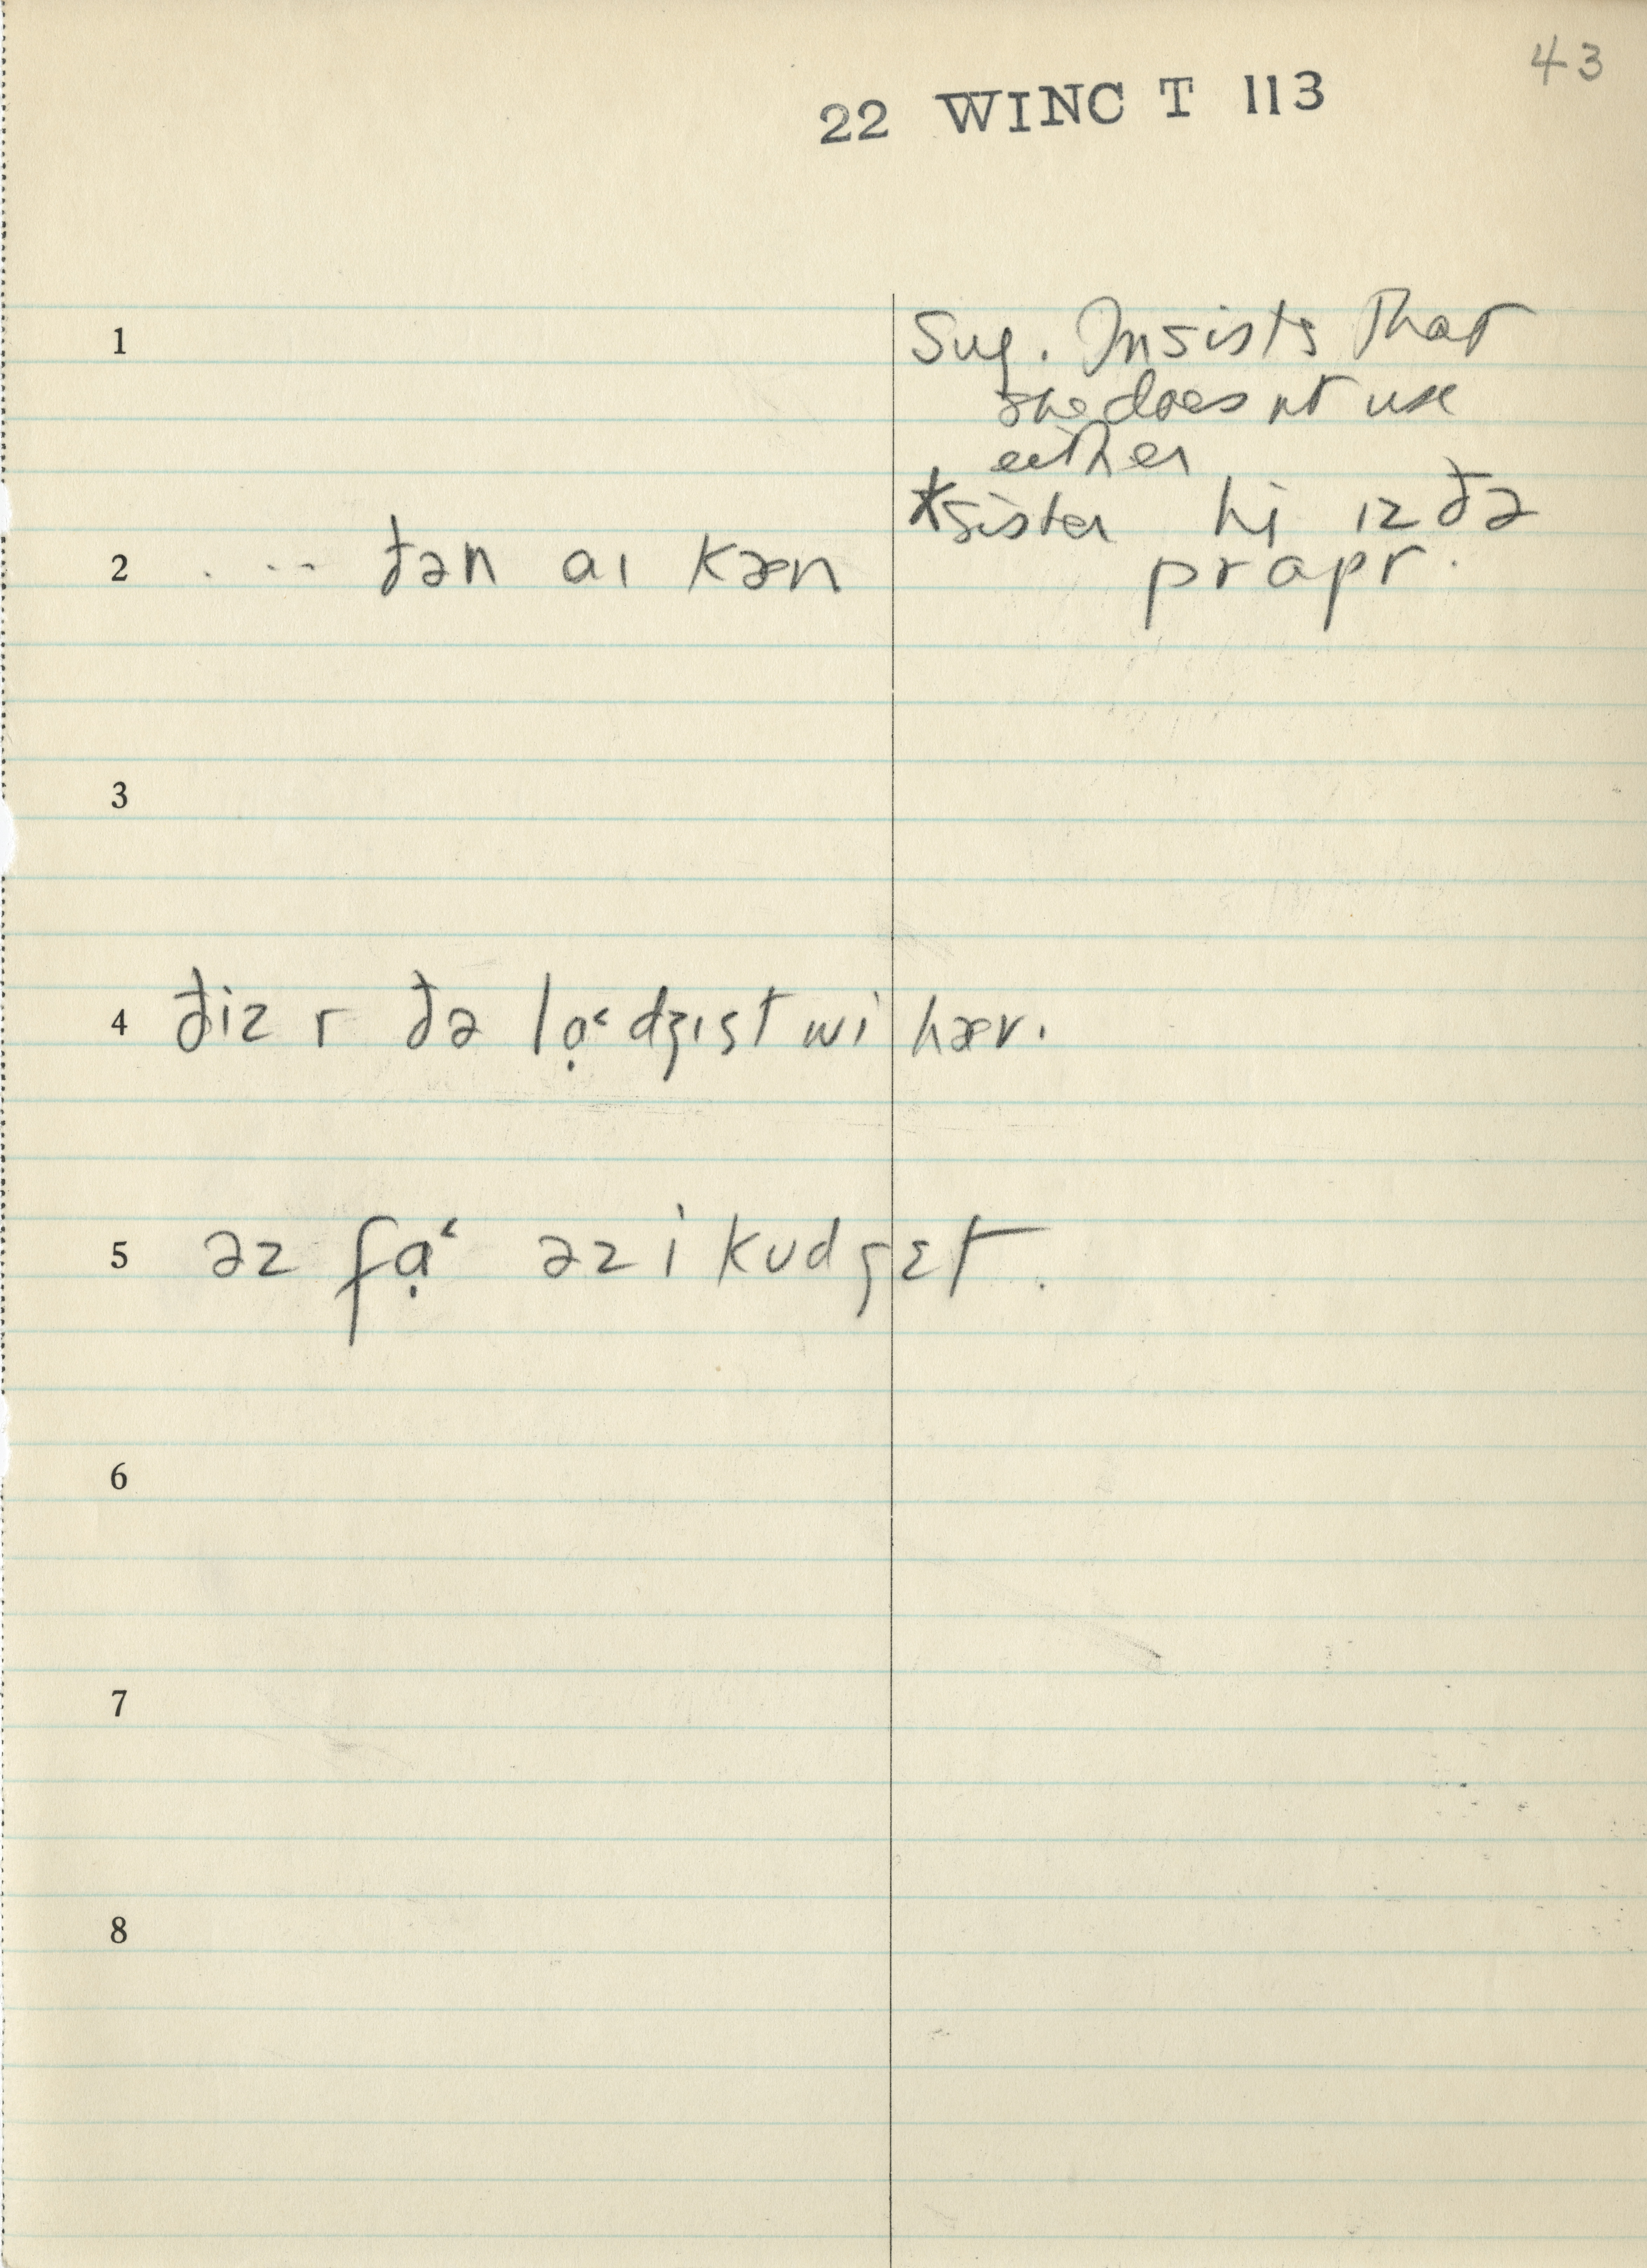 43
22 WINC T 113
1
Sug. Insists that
she does nt use
either
*sister hi ɪz ðə
prapr.
2 . . . ðən aɪ kæn
3
4 ðiz r ðə lạ˂dʒɪst wi hæv.
5 əz fạ˂ əz i kʊd gɛt.
6
7
8